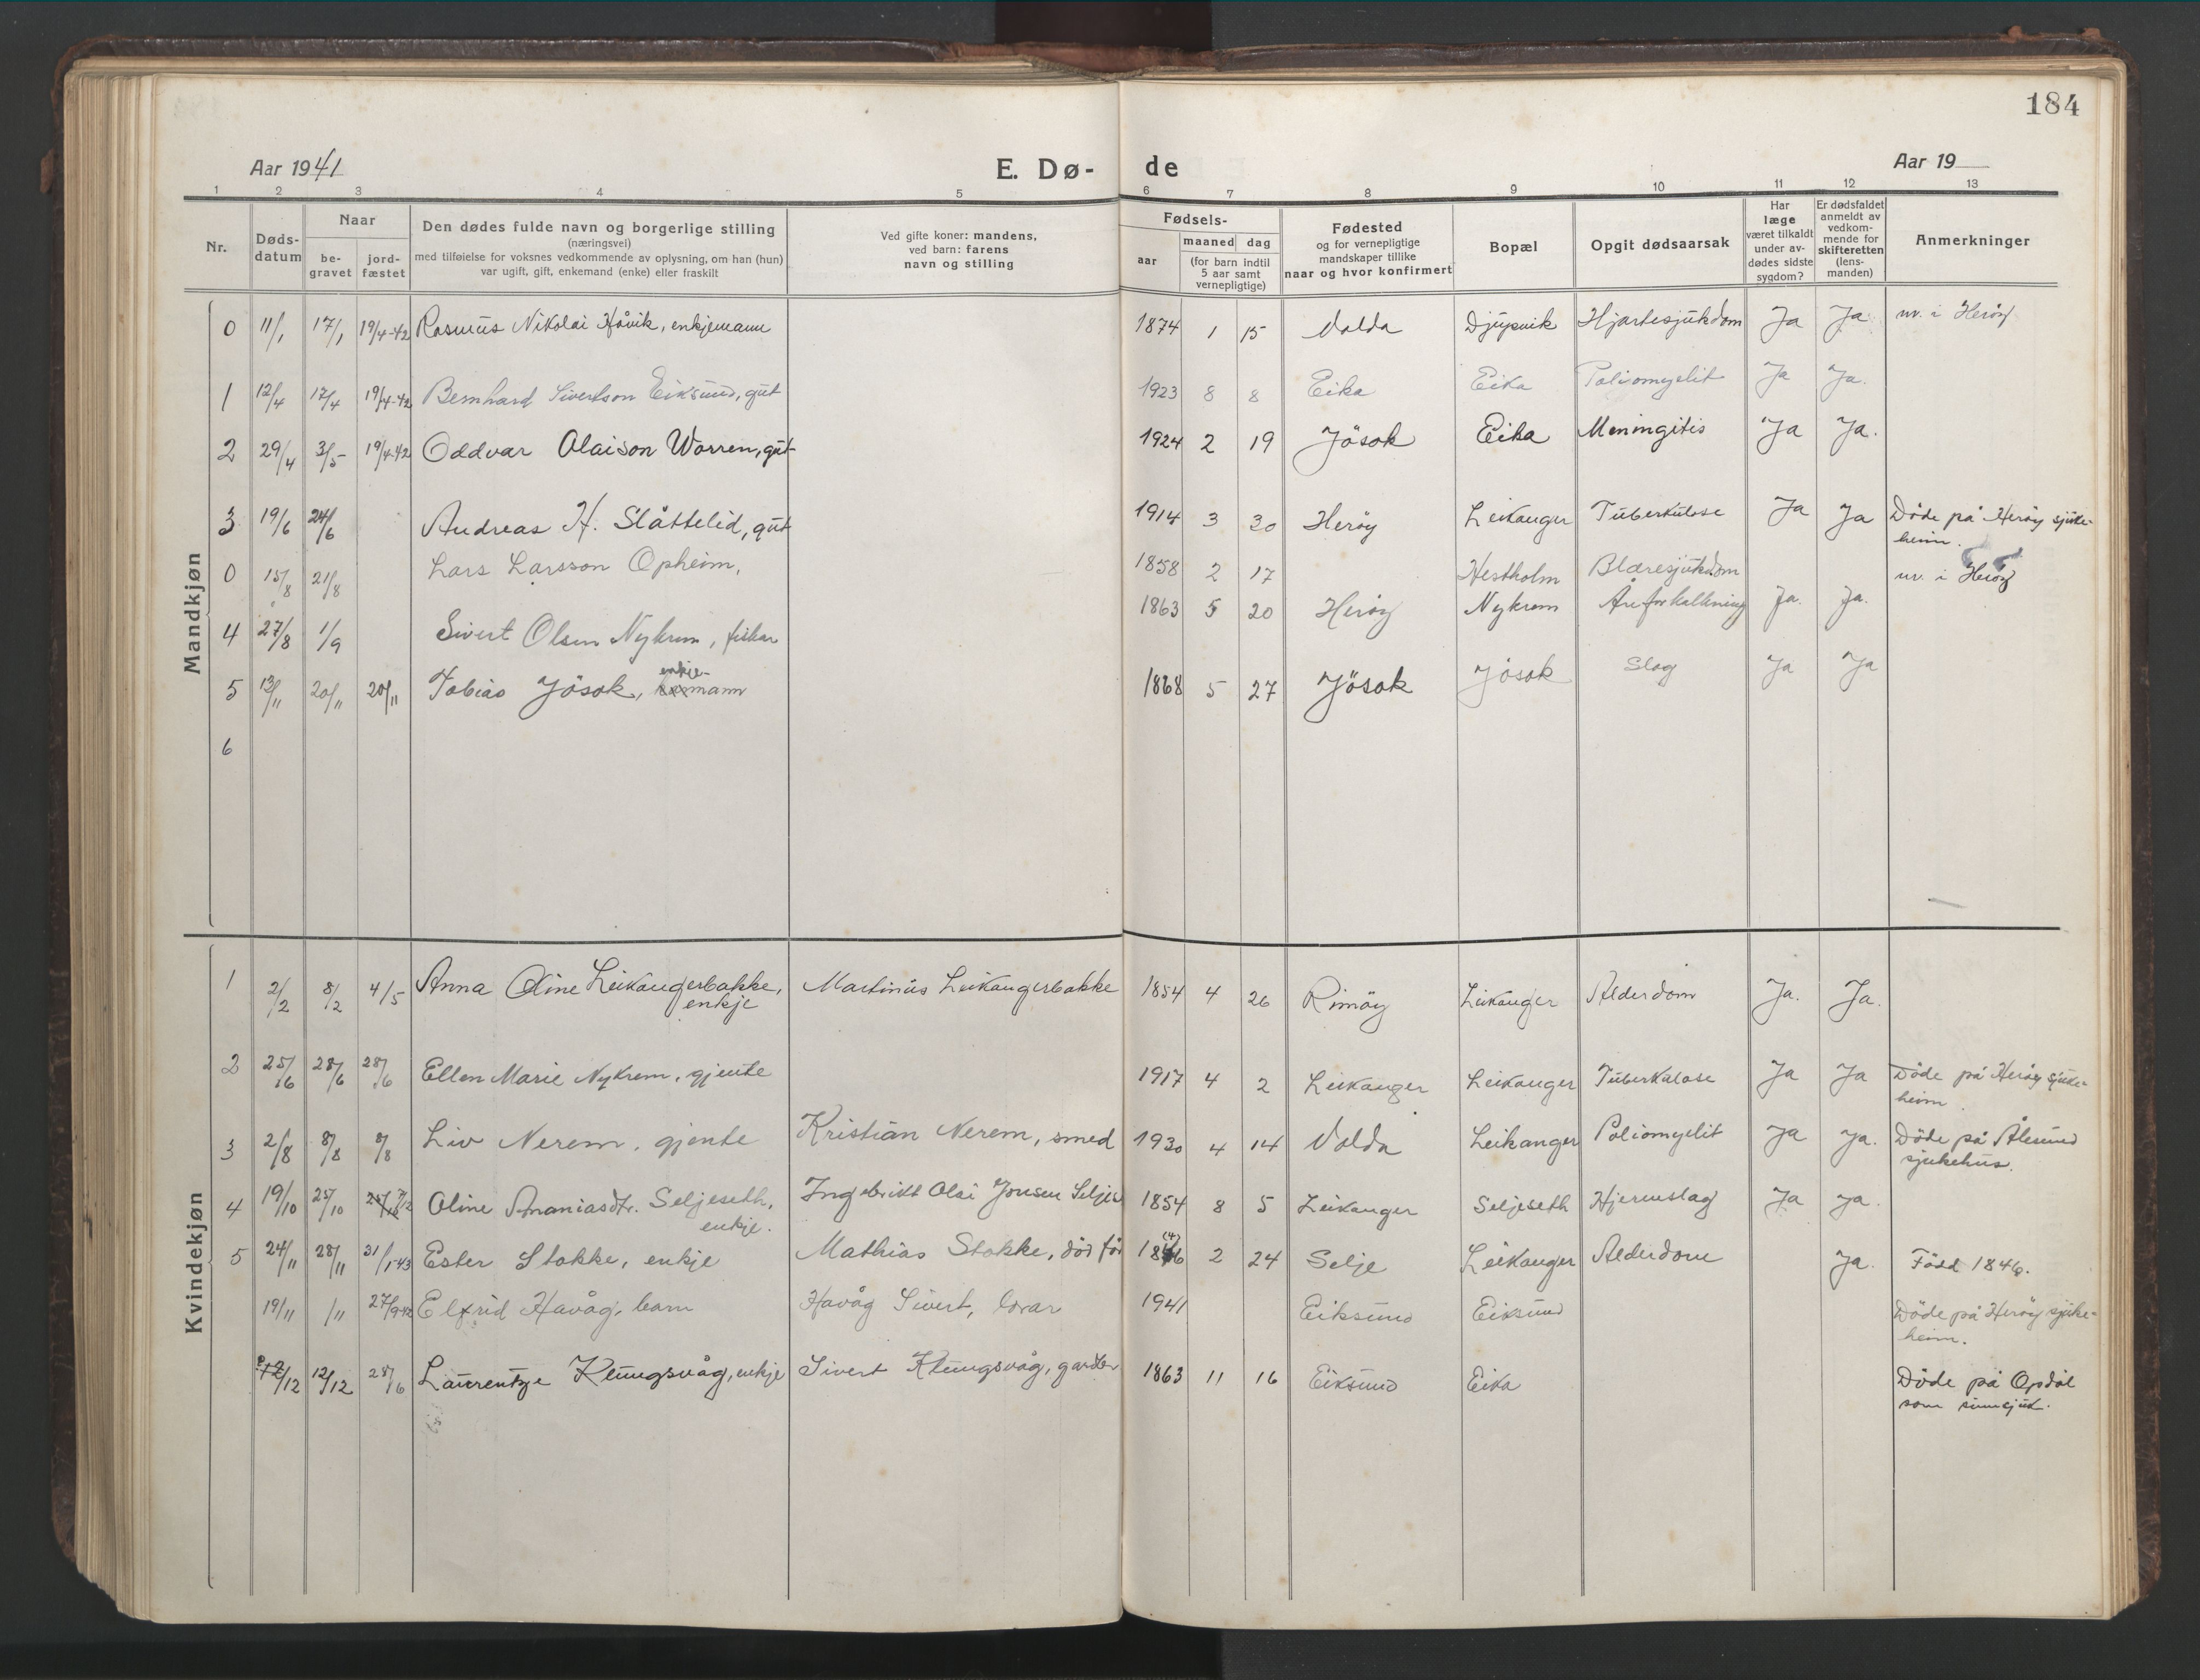 184
Aar 1941 E. Dø- de Aar 19
1 2 3 4 5 6 7 8 9 10 11 12 13
Nr. Døds-datum Naar be-gravet jord-fæstet
Den dødes fulde navn og borgerlige stilling
(næringsvei)
med tilføielse for voksnes vedkommende av oplysning, om han (hun)
var ugift, gift, enkemand (enke) eller fraskilt
Ved gifte koner: mandens,
ved barn: farens
navn og stilling
Fødsels-
aar maaned dag
(for barn indtil
5 aar samt
vernepligtige)
Fødested
og for vernepligtige
mandskaper tillike
naar og hvor konfirmert
Bopæl
Opgit dødsaarsak
Har
læge
været tilkaldt
under av-
dødes sidste
sygdom?
Er dødsfaldet
anmeldt av
vedkom-
mende for
skifteretten
(lens-
manden)
Anmerkninger
Mandkjøn
0 11/1 17/1 19/4-42 Rasmus Nikolai Håvik, enkjemann 1874 1 15 Volda Djupvik Hjartesjukdom Ja Ja nv. i Herøy
1 12/4 17/4 19/4-42 Bernhard Sivertson Eiksund, gut 1923 8 8 Eika Eika Poliomyelit Ja Ja.
2 29/4 3/5 19/4-42 Oddvar Olaison Worren, gut 1924 2 19 Jösok Eika Meningitis Ja Ja.
3 19/6 24/6 Andreas H. Slåttelid, gut 1914 3 30 Heröy Leikanger Tuberkulose Ja Ja Döde på Heröy sjuke-
heim.
0 15/8 21/8 Lars Larsson Opheim, 1858 2 17 Hestholm Blæresjukdom nv. i Heröy
4 27/8 1/9 Sivert Olsen Nykrem, fiskar 1863 5 20 Heröy Nykrem Åreforkalkning Ja. Ja.
5 13/11 20/11 20/11 Tobias Jösok, enkje-mann 1868 5 27 Jösok Jösok Slag Ja Ja
6
Kvindekjøn
1 2/2 8/2 4/5 Anna Oline Leikangerbakke, Martinus Leikangerbakke 1854 4 26 Rimöy Leikanger Alderdom Ja. Ja.
enkje
2 25/6 28/6 28/6 Ellen Marie Nykrem, gjente 1917 4 2 Leikanger Leikanger Tuberkulose Ja Ja Döde på Heröy sjuke-
heim.
3 2/8 8/8 8/8 Liv Nerem, gjente Kristian Nerem, smed 1930 4 14 Volda Leikanger Poliomyelit Ja Ja. Döde på Ålesund
sjukehus.
4 19/10 25/10 7/12 Oline Ananiasdtr. Seljeseth, Ingebrikt Olai Jonsen Seljes 1854 8 5 Leikanger Seljeseth Hjerneslag Ja Ja.
enkje.
5 24/11 28/11 31/1-43 Ester Stokke, enkje Mathias Stokke, död för 1846 (4) 2 24 Selje Leikanger Alderdom Ja. Född 1846.
19/11 /11 27/9-42 Elfrid Havåg, barn Havåg Sivert, 1941 Eiksund Eiksund Döde på Heröy sjuke-
heim.
12/12 28/6 Laurentze Klungsvåg, enkje Sivert Klungsvåg, 1863 11 16 Eiksund Eika Döde på Opdöl
som sinnsjuk.